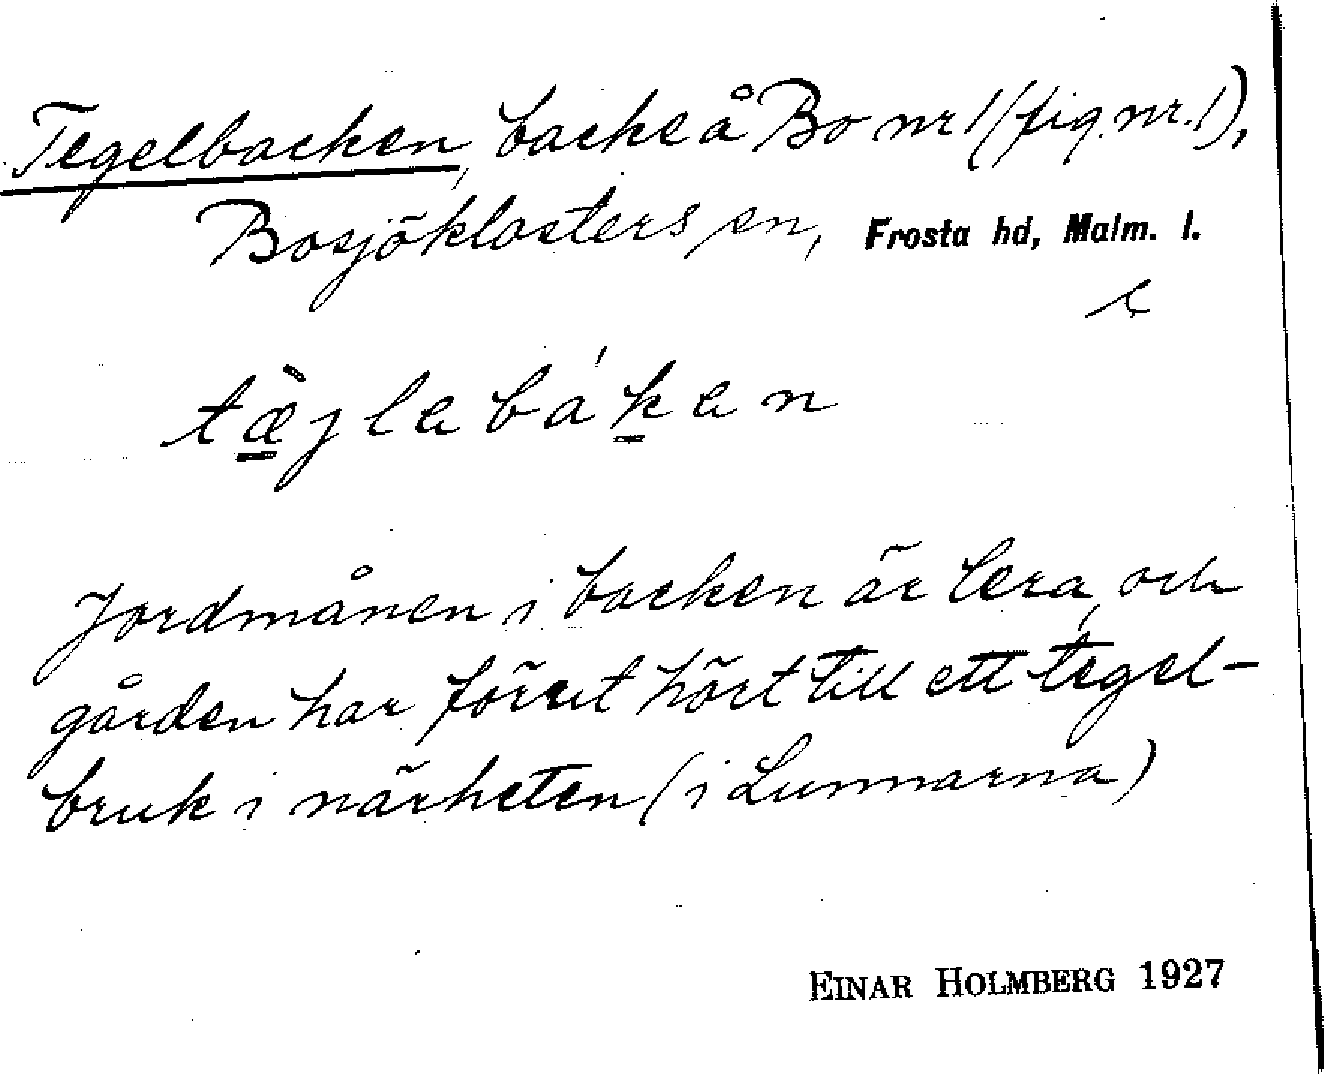 Tegelbacken, backe å Bo nr 1 (fig. nr. 1),
Bosjöklosters sn, Frosta hd, Malm. l.
tæ̀jlebáken
Jordmånen i backen är lera, och
gården har förut hört till ett tegel-
bruk i närheten (i Lunnarna)
EINAR HOLMBERG 1927